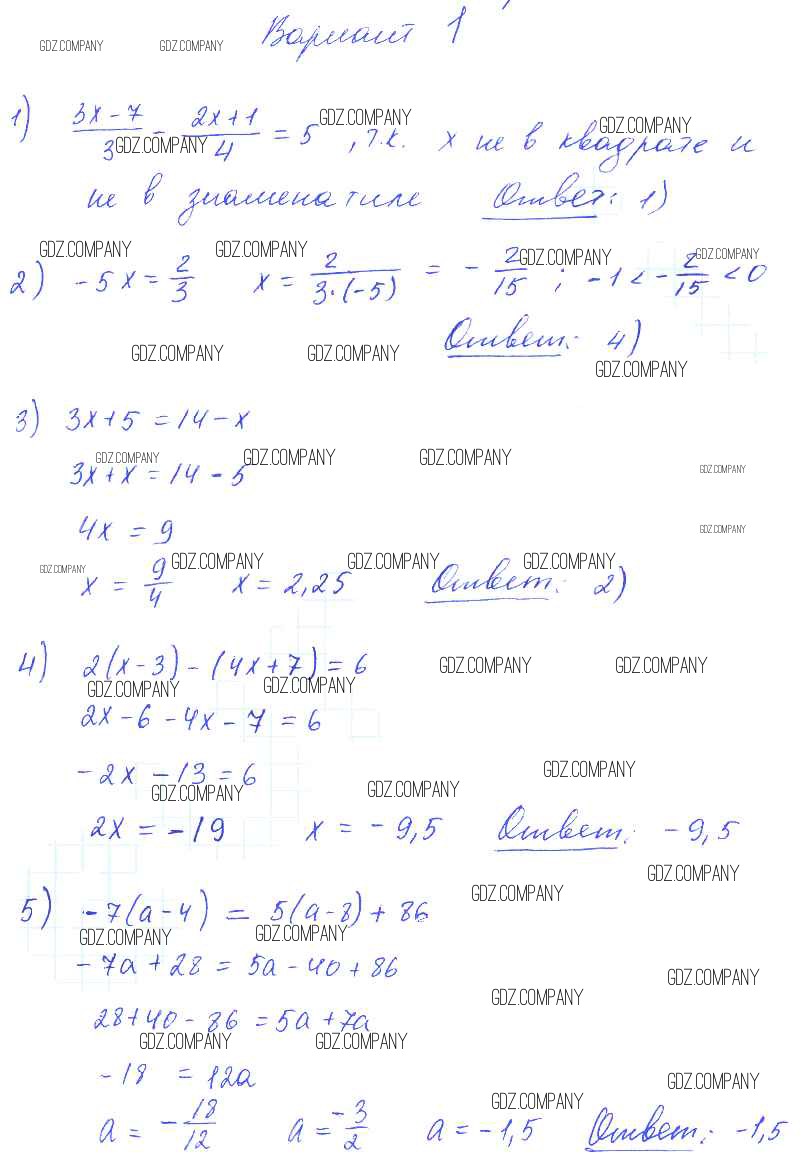 Вариант 1
GDZ.COMPANY GDZ.COMPANY
1) (3x-7)/3 - (2x+1)/4 = 5 , т.к. x не в квадрате и
GDZ.COMPANY GDZ.COMPANY GDZ.COMPANY
не в знаменателе Ответ: 1)
GDZ.COMPANY GDZ.COMPANY GDZ.COMPANY GDZ.COMPANY
2) -5x = 2/3 x = 2/(3·(-5)) = - 2/15 ; -1 < - 2/15 < 0
Ответ: 4)
GDZ.COMPANY GDZ.COMPANY GDZ.COMPANY
3) 3x+5 = 14-x
GDZ.COMPANY GDZ.COMPANY GDZ.COMPANY GDZ.COMPANY
3x+x = 14-5
4x = 9
GDZ.COMPANY
GDZ.COMPANY GDZ.COMPANY GDZ.COMPANY GDZ.COMPANY
x = 9/4 x = 2,25 Ответ: 2)
4) 2(x-3) - (4x+7) = 6
GDZ.COMPANY GDZ.COMPANY
GDZ.COMPANY GDZ.COMPANY
2x-6-4x-7 = 6
-2x-13 = 6
GDZ.COMPANY
GDZ.COMPANY GDZ.COMPANY
2x = -19 x = -9,5 Ответ: -9,5
GDZ.COMPANY
GDZ.COMPANY
5) -7(a-4) = 5(a-8)+86
GDZ.COMPANY GDZ.COMPANY
-7a+28 = 5a-40+86
GDZ.COMPANY
GDZ.COMPANY
28+40-86 = 5a+7a
GDZ.COMPANY GDZ.COMPANY
-18 = 12a
GDZ.COMPANY
GDZ.COMPANY
a = - 18/12 a = -3/2 a = -1,5 Ответ: -1,5